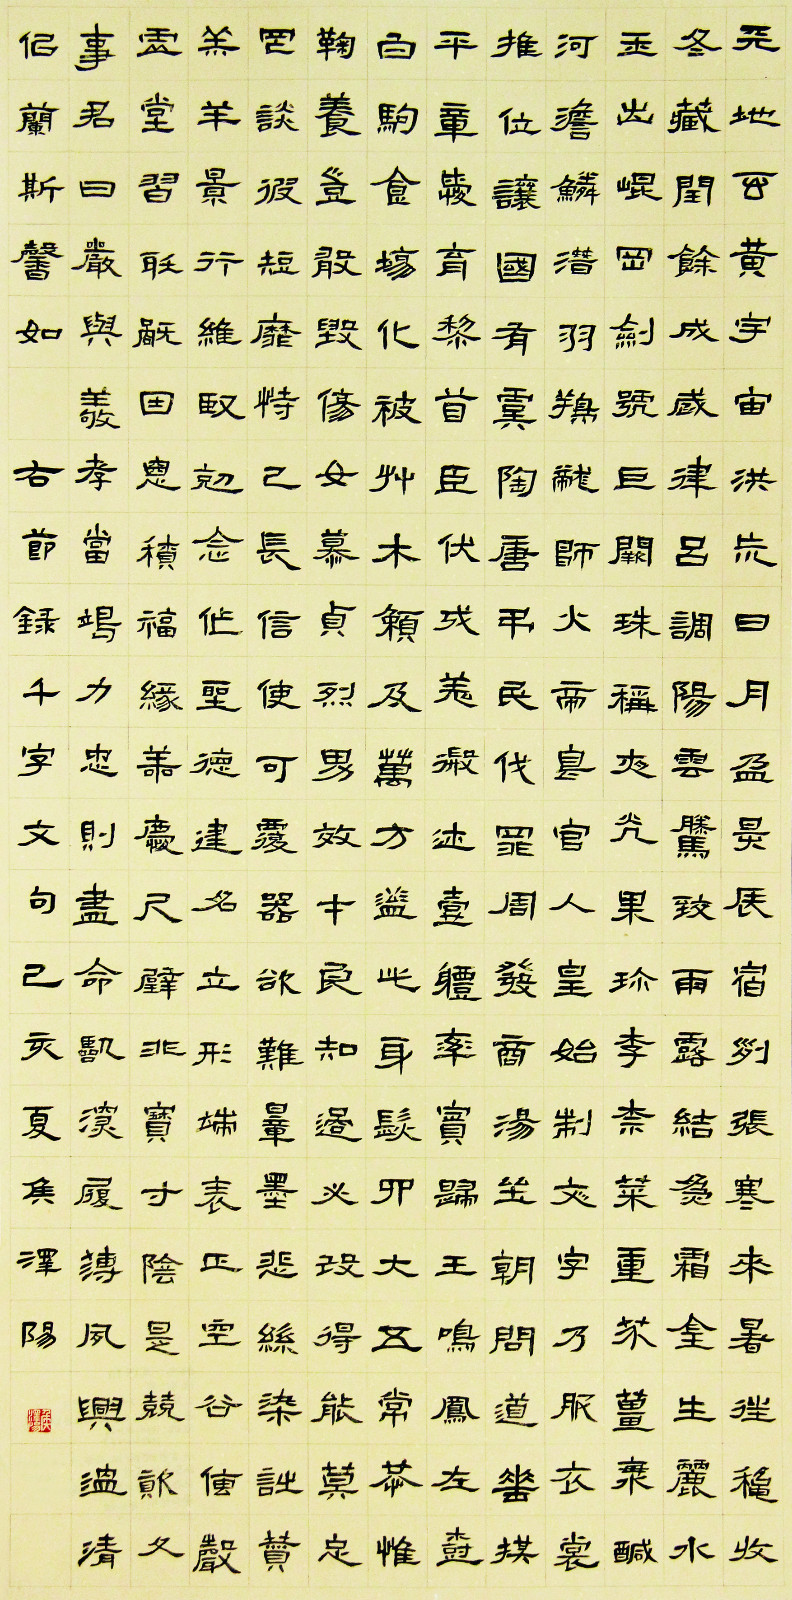 天地玄黃宇宙洪荒日月盈昃辰宿列張寒來暑往穐收
冬藏閏餘成歲律呂調陽雲騰致雨露結為霜金生麗水
玉出崐岡劍號巨闕珠稱夜光果珍李柰菜重芥薑海鹹
河澹鱗潛羽翔龍師火帝鳥官人皇始制文字乃服衣裳
推位讓國有虞陶唐弔民伐罪周發商湯坐朝問道垂拱
平章愛育黎首臣伏戎羌遐邇壹體率賓歸王鳴鳳在樹
白駒食場化被艸木賴及萬方蓋此身髮四大五常恭惟
鞠養豈敢毀傷女慕貞烈男效才良知過必改得能莫忘
罔談彼短靡恃己長信使可覆器欲難量墨悲絲染詩贊
羔羊景行維賢剋念作聖德建名立形端表正空谷傳聲
虛堂習聽禍因惡積福緣善慶尺璧非寶寸陰是競資父
事君曰嚴與敬孝當竭力忠則盡命臨深履薄夙興溫清
似蘭斯馨如 右節錄千字文句己亥夏侯澤陽